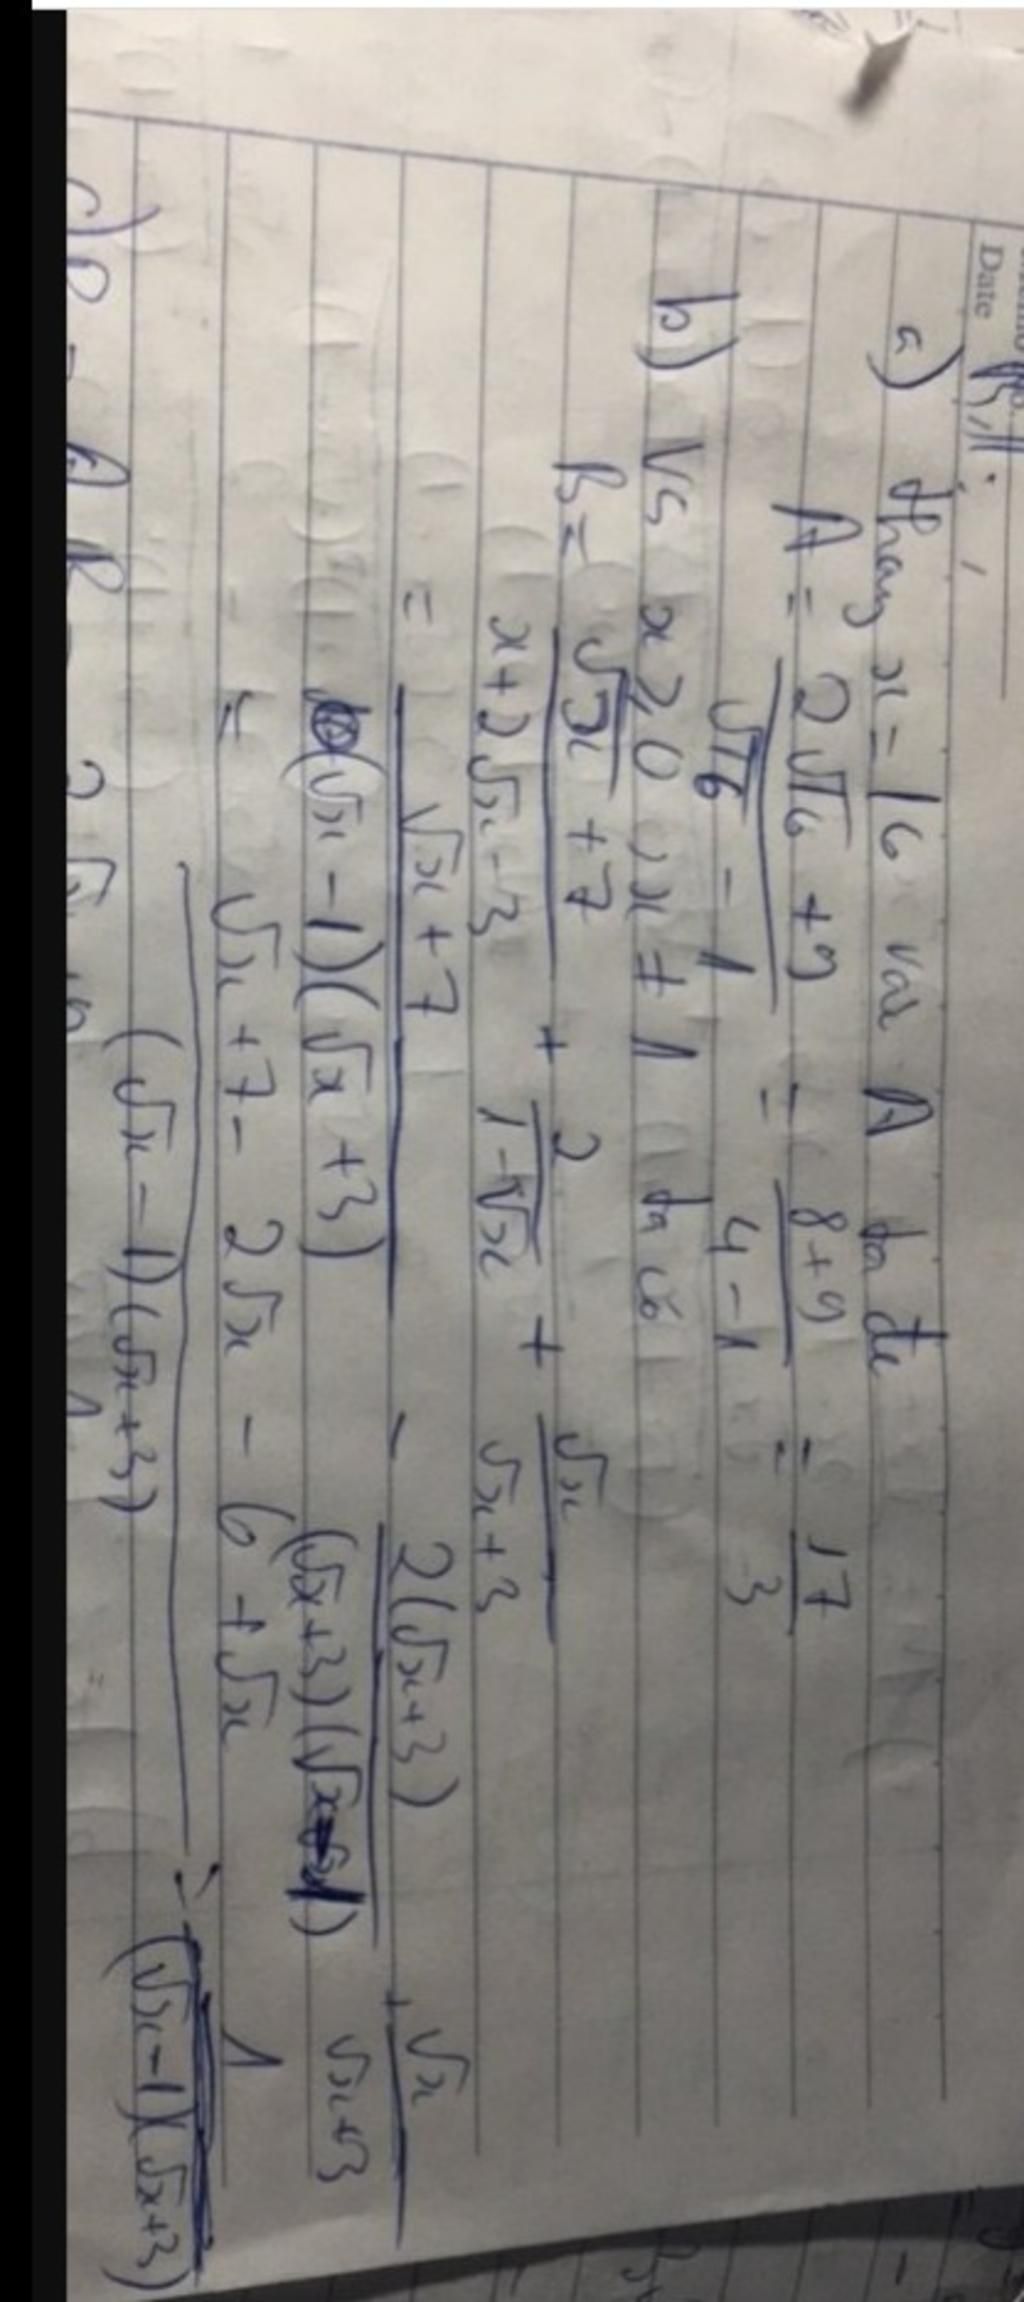 Date
Bài:
a) thay x = 16 vào A ta đc
A = (2√16 + 9)/(√16 - 1) = (8+9)/(4-1) = 17/3
b) Vs x ≥ 0, x ≠ 1 ta có
B = (√x + 7)/(x + 2√x - 3) + 2/(1-√x) + √x/(√x+3)
= (√x + 7)/((√x - 1)(√x + 3)) - 2(√x+3)/((√x+3)(√x-1)) + √x/(√x+3)
= (√x + 7 - 2√x - 6 + √x)/((√x - 1)(√x+3)) = 1/((√x-1)(√x+3))
c) P = A.B